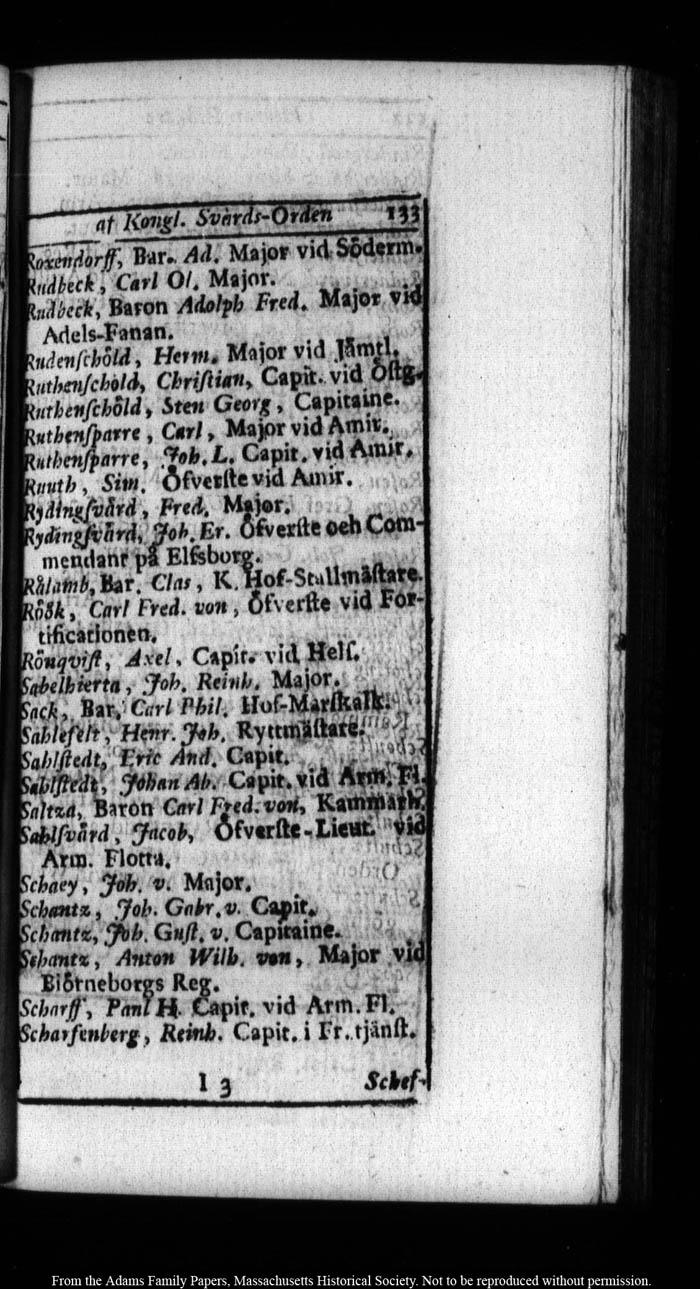 af Kongl. Svårds-Orden 133
Roxendorff, Bar. Ad. Major vid Sôderm.
Rudbeck, Carl Ol. Major.
Rudbeck, Baron Adolph Fred. Major vid
Adels-Fanan.
Rudenſchôld, Herm. Major vid Jåmtl.
Ruthenſchôld, Chriſtian, Capit. vid Oſtg.
Ruthenſchôld, Sten Georg, Capitaine.
Ruthenſparre, Carl, Major vid Amir.
Ruthenſparre, Joh. L. Capit. vid Amir.
Ruuth, Sim. Öfverſte vid Amir.
Rydingſvård, Fred. Major.
Rydingſvård, Joh. Er. Öfverſte och Com-
mendant på Elfsborg.
Rålamb, Bar. Clas, K. Hof-Stallmåſtare.
Rôôk, Carl Fred. von, Öfverſte vid For-
tificationen.
Rônqviſt, Axel, Capit. vid Helſ.
Sabelhierta, Joh. Reinh. Major.
Sack, Bar. Carl Phil. Hof-Marſkalk.
Sahlefelt, Henr. Joh. Ryttmåſtare.
Sahlſtedt, Eric And. Capit.
Sahlſtedt, Johan Ab. Capit. vid Arm. Fl.
Saltza, Baron Carl Fred. von, Kammarh.
Sahlſvård, Jacob, Öfverſte-Lieut. vid
Arm. Flotta.
Schaey, Joh. v. Major.
Schantz, Joh. Gabr. v. Capit.
Schantz, Joh. Guſt. v. Capitaine.
Schantz, Anton Wilh. von, Major vid
Biôrneborgs Reg.
Scharff, Paul H. Capit. vid Arm. Fl.
Scharfenberg, Reinh. Capit. i Fr. tjånſt.
I 3 Schef-
From the Adams Family Papers, Massachusetts Historical Society. Not to be reproduced without permission.